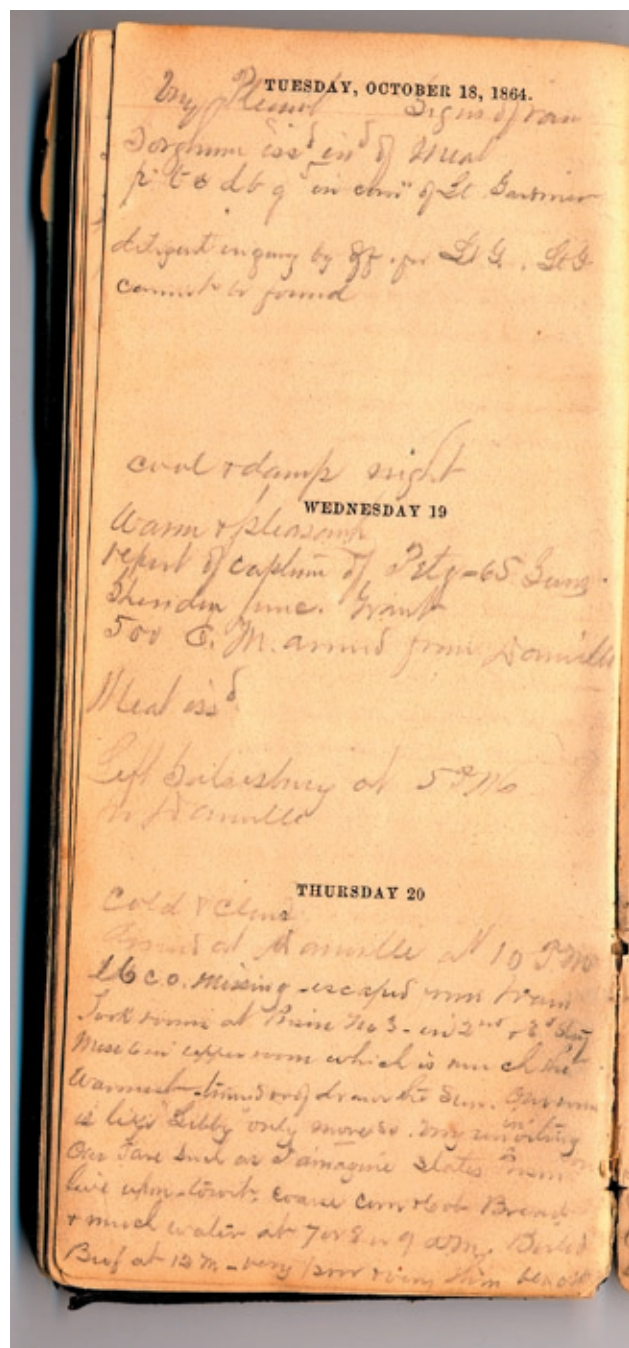 TUESDAY, OCTOBER 18, 1864.
Very Pleasant Signs of rain
Sorghum issd in of Meal
of Lt Gardner
diligent inquiry by for Lt G. Lt G
cannot be found
cool & damp night
WEDNESDAY 19
Warm & pleasant
report of capture of Petg - 65 Guns.
Sheridan junc. Grant
500 E. M. arrived from Danville
Meal issd
Left Salisbury at 5 PM
Danville
THURSDAY 20
Cold & Clear
Arrived at Danville at 10 PM
16 c.o. missing - escaped from train
Took rooms at Prison No 3 - in 2nd & 3d Story
Mess 6 in upper room which is much the
Warmest - of draws the Sun. Our room
is like "Libby" only more so. My
Our Fare such as I imagine States
live upon - towit: Coarse Corn & Cob Bread
& much water at 7 or 8 or 9 AM. Boiled
Beef at 12 M - very poor & very thin